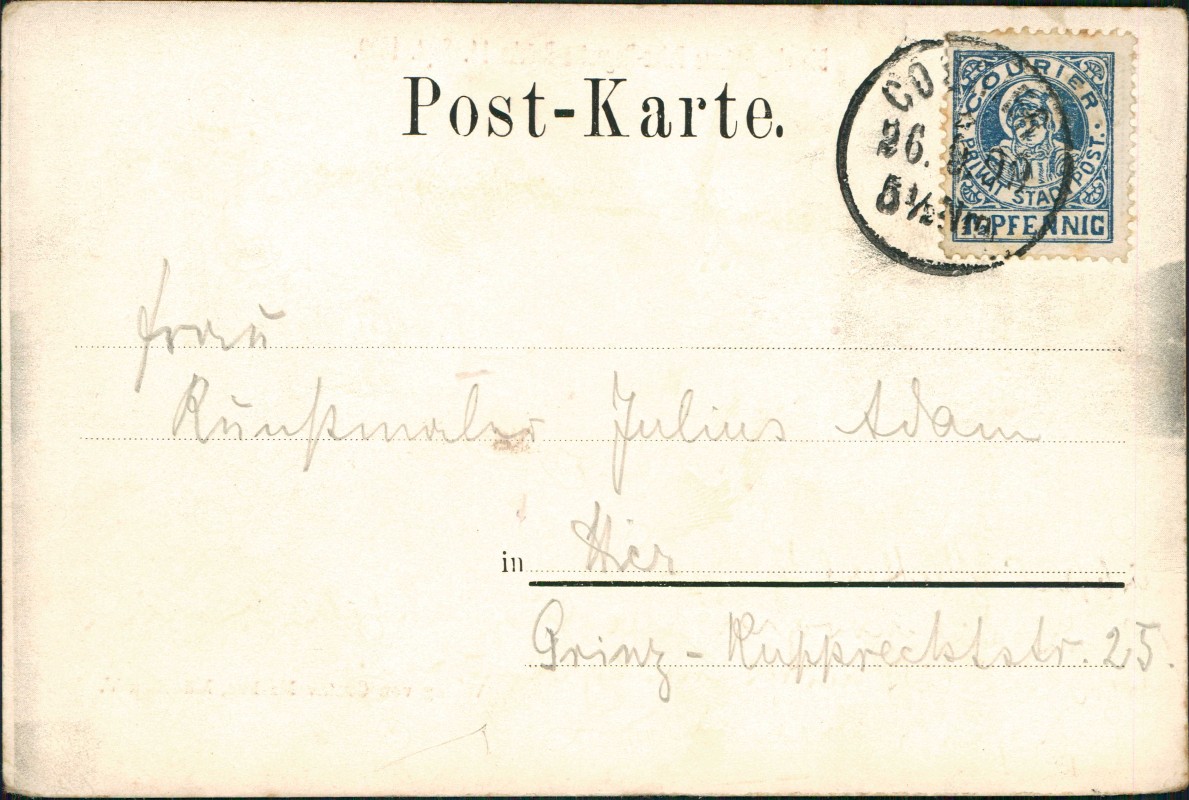 Post-Karte.
COURIER
PRIVAT STADTPOST.
PFENNIG
26.
5½
Frau
Kunstmaler Julius Adam
in Hier
Prinz-Rupprechtstr. 25.